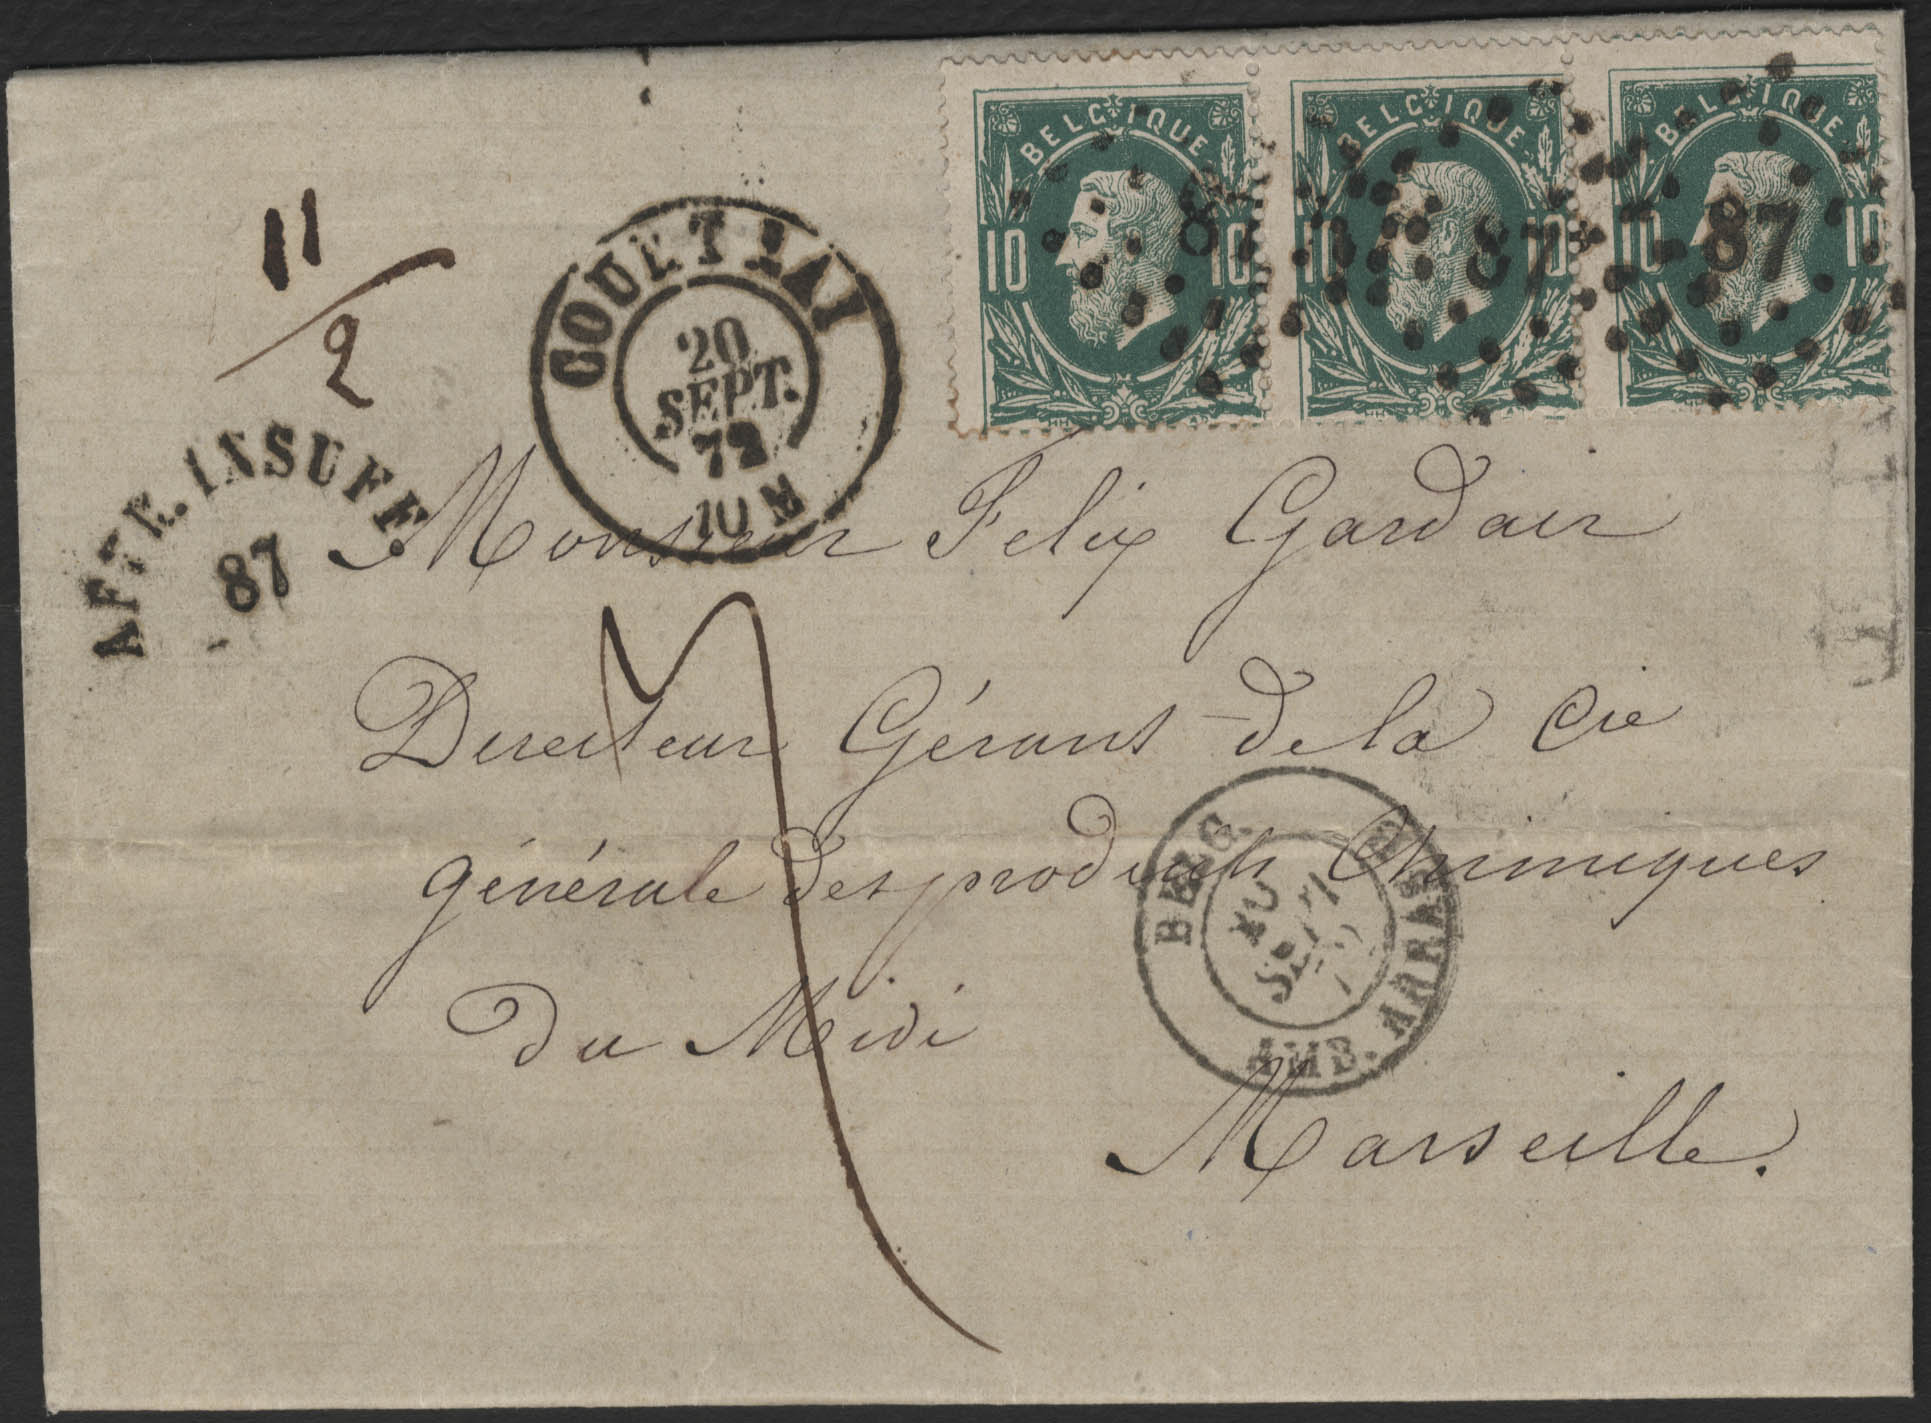 BELGIQUE BELGIQUE BELGIQUE
10 10 10 10 10 10
87 87 87
11/2
COURTRAI
20
SEPT.
72
10 M
AFFR. INSUFF.
87
Monsieur Felix Gardair
7
Directeur Gérant de la Cie
générale des produits Chimiques
du Midi
Marseille.
BELG.
AMB. ARRAS
SEPT